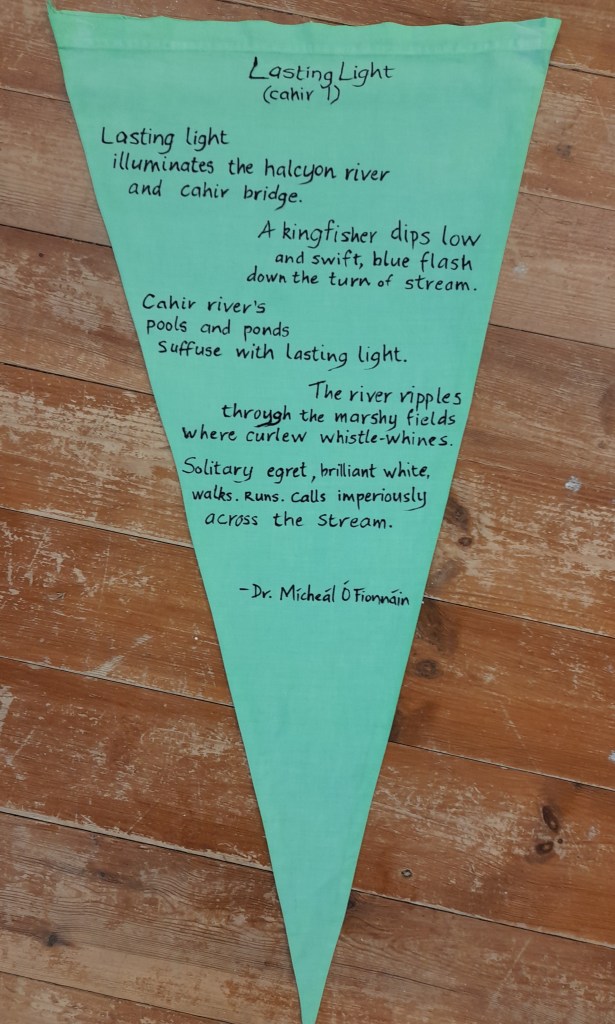 Lasting Light
(cahir 1)
Lasting light
illuminates the halcyon river
and cahir bridge.
A kingfisher dips low
and swift, blue flash
down the turn of stream.
Cahir river's
pools and ponds
suffuse with lasting light.
The river ripples
through the marshy fields
where curlew whistle-whines.
Solitary egret, brilliant white,
walks. Runs. Calls imperiously
across the stream.
-Dr. Mícheál Ó Fionnáin